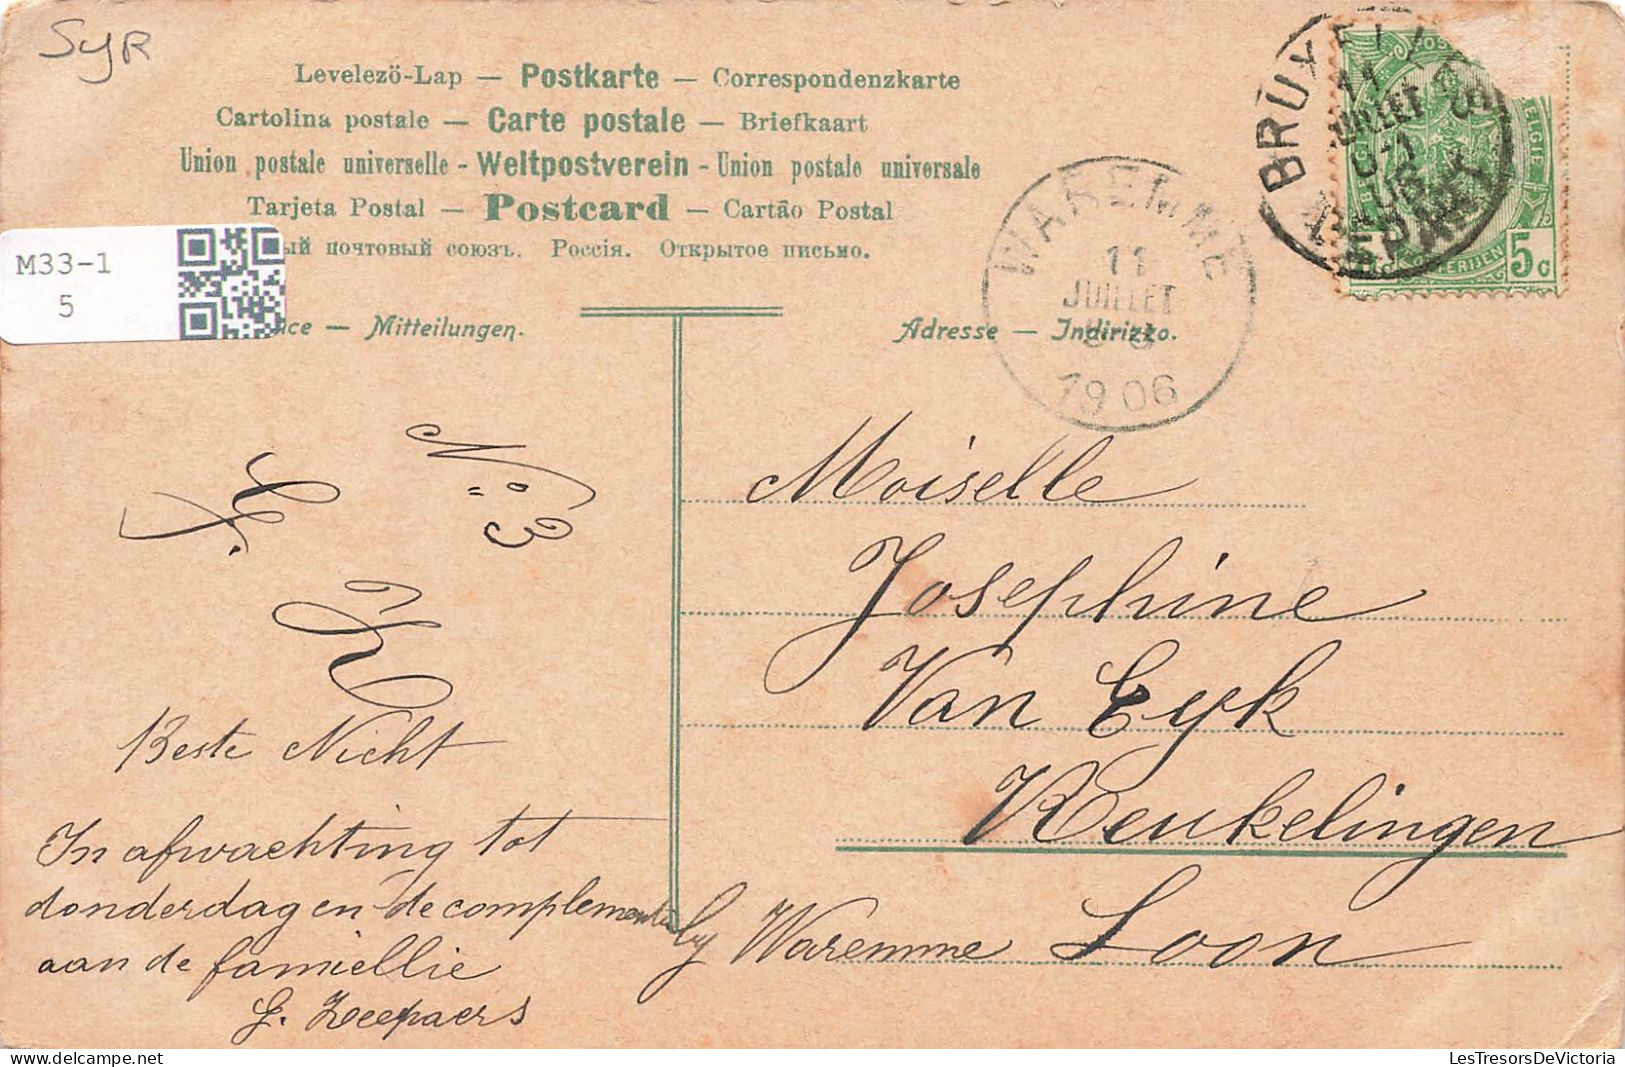 SyR
Levelezö-Lap — Postkarte — Correspondenzkarte
Cartolina postale — Carte postale — Briefkaart
Union postale universelle - Weltpostverein - Union postale universale
Tarjeta Postal — Postcard — Cartão Postal
ый почтовый союзъ. Россія. Открытое письмо.
M33-1
5
ce — Mitteilungen.
Adresse — Indirizzo.
BRUXELLES
11
JUILLET
5c
WAREMME
11
JUILLET
1906
N:3
Moiselle
Josephine
Van Eyk
Reukelingen
by Waremme Loon
Beste Nicht
In afwachting tot
donderdag en de complementen
aan de famiellie
G. Zeepaers
LesTresorsDeVictoria